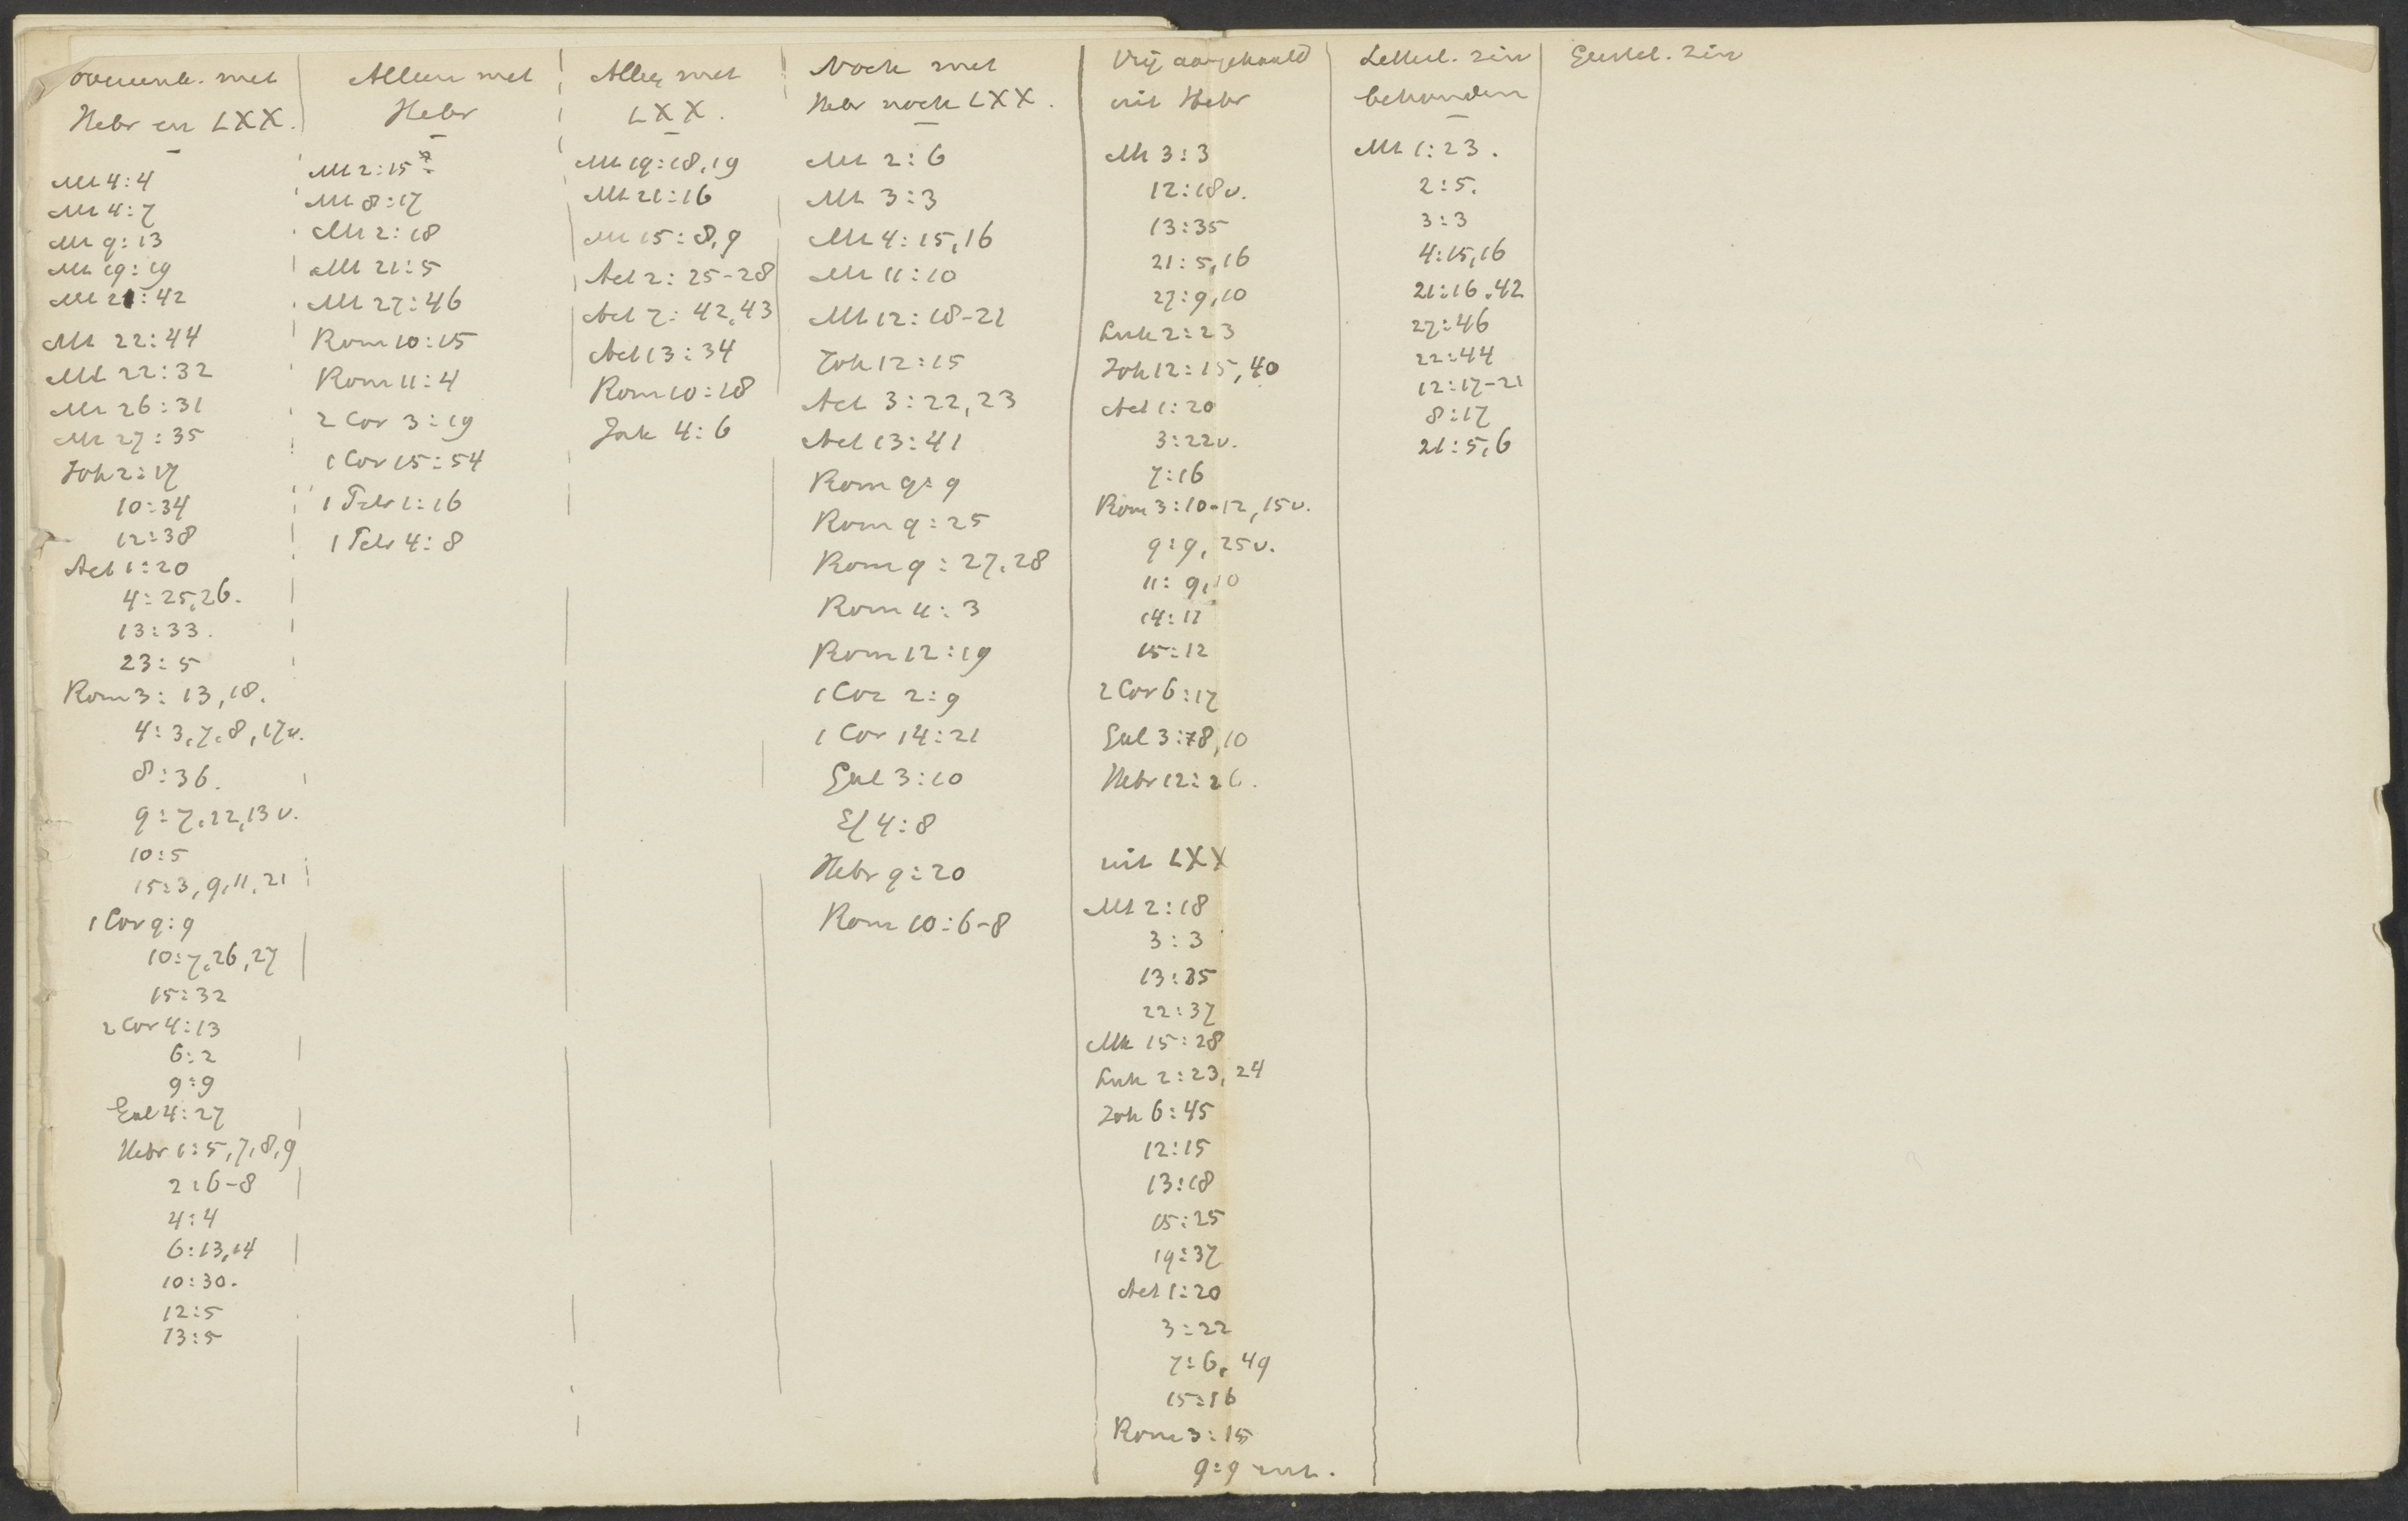 overeenk. met
Hebr en LXX.
Mt 4:4
Mt 4:7
Mt 9:13
Mt 19:19
Mt 21:42
Mt 22:44
Mt 22:32
Mt 26:31
Mt 27:35
Joh 2:17
10:34
12:38
Act 1:20
4:25,26.
13:33.
23:5
Rom 3: 13,18.
4: 3,7,8,17v.
8:36.
9:7,12,13v.
10:5
15:3,9,11,21
1 Cor 9:9
10:7,26,27
15:32
2 Cor 4:13
6:2
9:9
Gal 4:27
Hebr 1:5,7,8,9
2:6-8
4:4
6:13,14
10:30.
12:5
13:5
Alleen met
Hebr
Mt 2:15
Mt 8:17
Mt 2:18
Mt 21:5
Mt 27:46
Rom 10:15
Rom 11:4
2 Cor 3:19
1 Cor 15:54
1 Petr 1:16
1 Petr 4:8
Alleen met
LXX.
Mt 19:18,19
Mt 21:16
Mt 15:8,9
Act 2:25-28
Act 7:42,43
Act 13:34
Rom 10:18
Jak 4:6
Noch met
Hebr noch LXX.
Mt 2:6
Mt 3:3
Mt 4:15,16
Mt 11:10
Mt 12:18-21
Joh 12:15
Act 3:22,23
Act 13:41
Rom 9:9
Rom 9:25
Rom 9:27,28
Rom 11:3
Rom 12:19
1 Cor 2:9
1 Cor 14:21
Gal 3:10
Ef 4:8
Hebr 9:20
Rom 10:6-8
Vrij aangehaald
uit Hebr
Mt 3:3
12:18v.
13:35
21:5,16
27:9,10
Luk 2:23
Joh 12:15,40
Act 1:20
3:22v.
7:16
Rom 3:10-12,15v.
9:9, 25v.
11:9,10
14:11
15:12
2 Cor 6:17
Gal 3:8,10
Hebr 12:26.
uit LXX
Mt 2:18
3:3
13:35
22:37
Mk 15:28
Luk 2:23,24
Joh 6:45
12:15
13:18
15:25
19:37
Act 1:20
3:22
7:6, 49
15:16
Rom 3:15
9:9 enz.
Letterl. zin
behouden
Mt 1:23.
2:5.
3:3
4:15,16
21:16.42
27:46
22:44
12:17-21
8:17
21:5,6
Geestel. zin